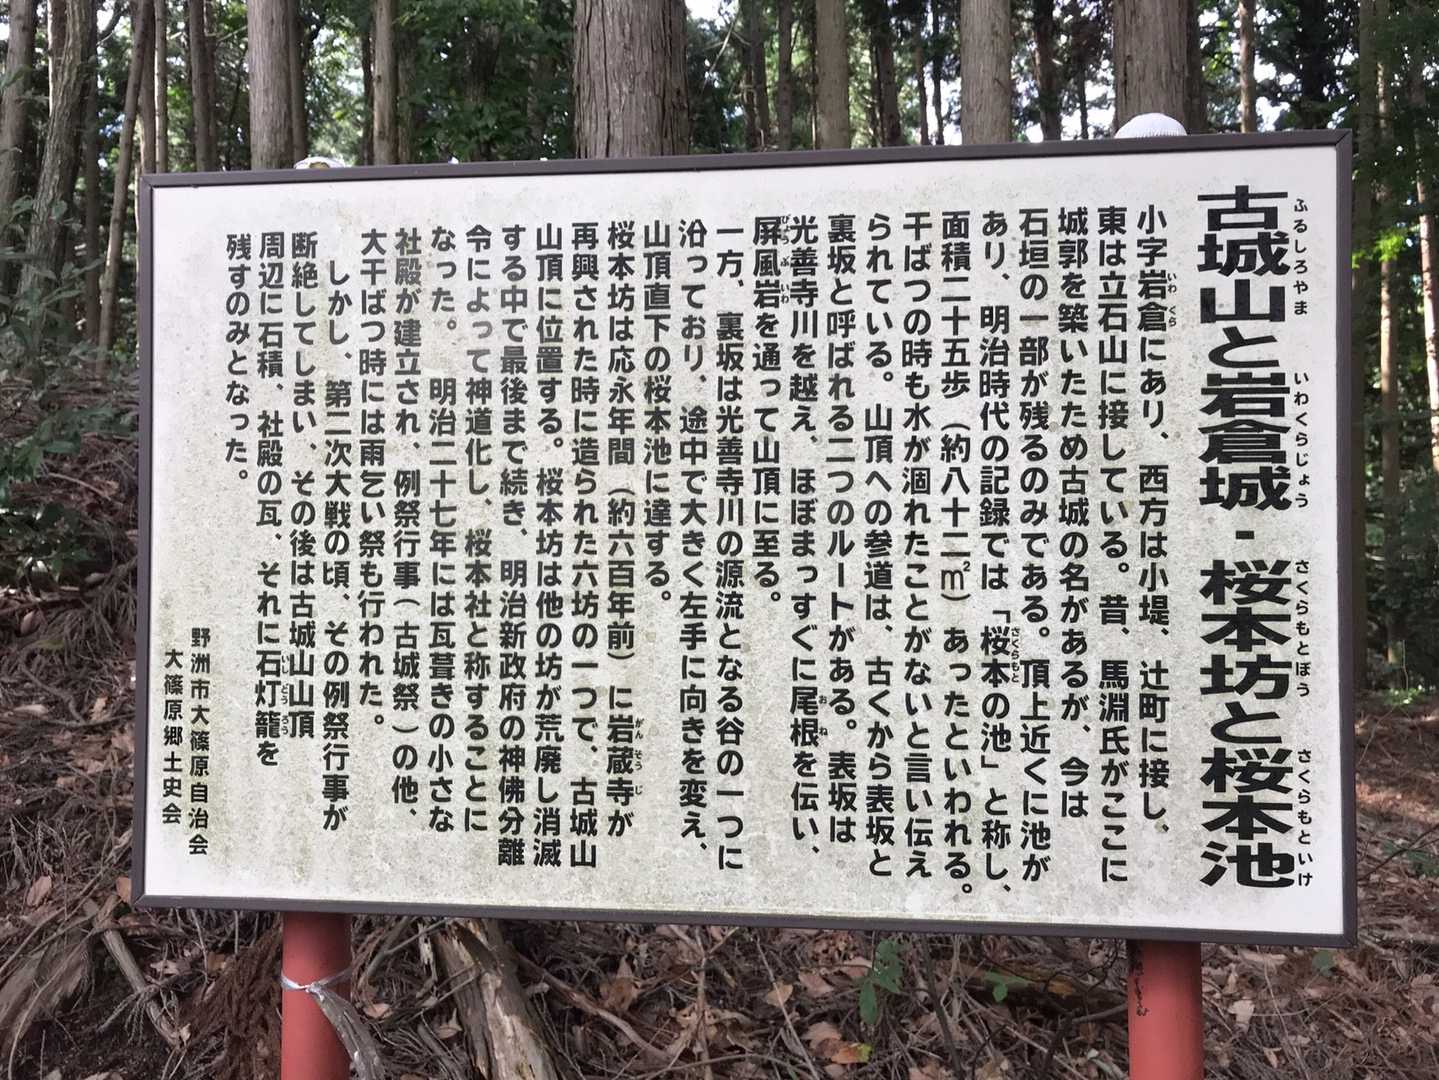 古城山と岩倉城・桜本坊と桜本池
ふるしろやま いわくらじょう さくらもとぼう さくらもといけ
小字岩倉にあり、西方は小堤、辻町に接し、
東は立石山に接している。昔、馬淵氏がここに
城郭を築いたため古城の名があるが、今は
石垣の一部が残るのみである。頂上近くに池が
あり、明治時代の記録では「桜本の池」と称し、
面積二十五歩（約八十二㎡）あったといわれる。
干ばつの時も水が涸れたことがないと言い伝え
られている。山頂への参道は、古くから表坂と
裏坂と呼ばれる二つのルートがある。表坂は
光善寺川を越え、ほぼまっすぐに尾根を伝い、
屏風岩を通って山頂に至る。
一方、裏坂は光善寺川の源流となる谷の一つに
沿っており、途中で大きく左手に向きを変え、
山頂直下の桜本池に達する。
桜本坊は応永年間（約六百年前）に岩蔵寺が
再興された時に造られた六坊の一つで、古城山
山頂に位置する。桜本坊は他の坊が荒廃し消滅
する中で最後まで続き、明治新政府の神佛分離
令によって神道化し、桜本社と称することに
なった。明治二十七年には瓦葺きの小さな
社殿が建立され、例祭行事（古城祭）の他、
大干ばつ時には雨乞い祭も行われた。
しかし、第二次大戦の頃、その例祭行事が
断絶してしまい、その後は古城山山頂
周辺に石積、社殿の瓦、それに石灯籠を
残すのみとなった。
野洲市大篠原自治会
大篠原郷土史会